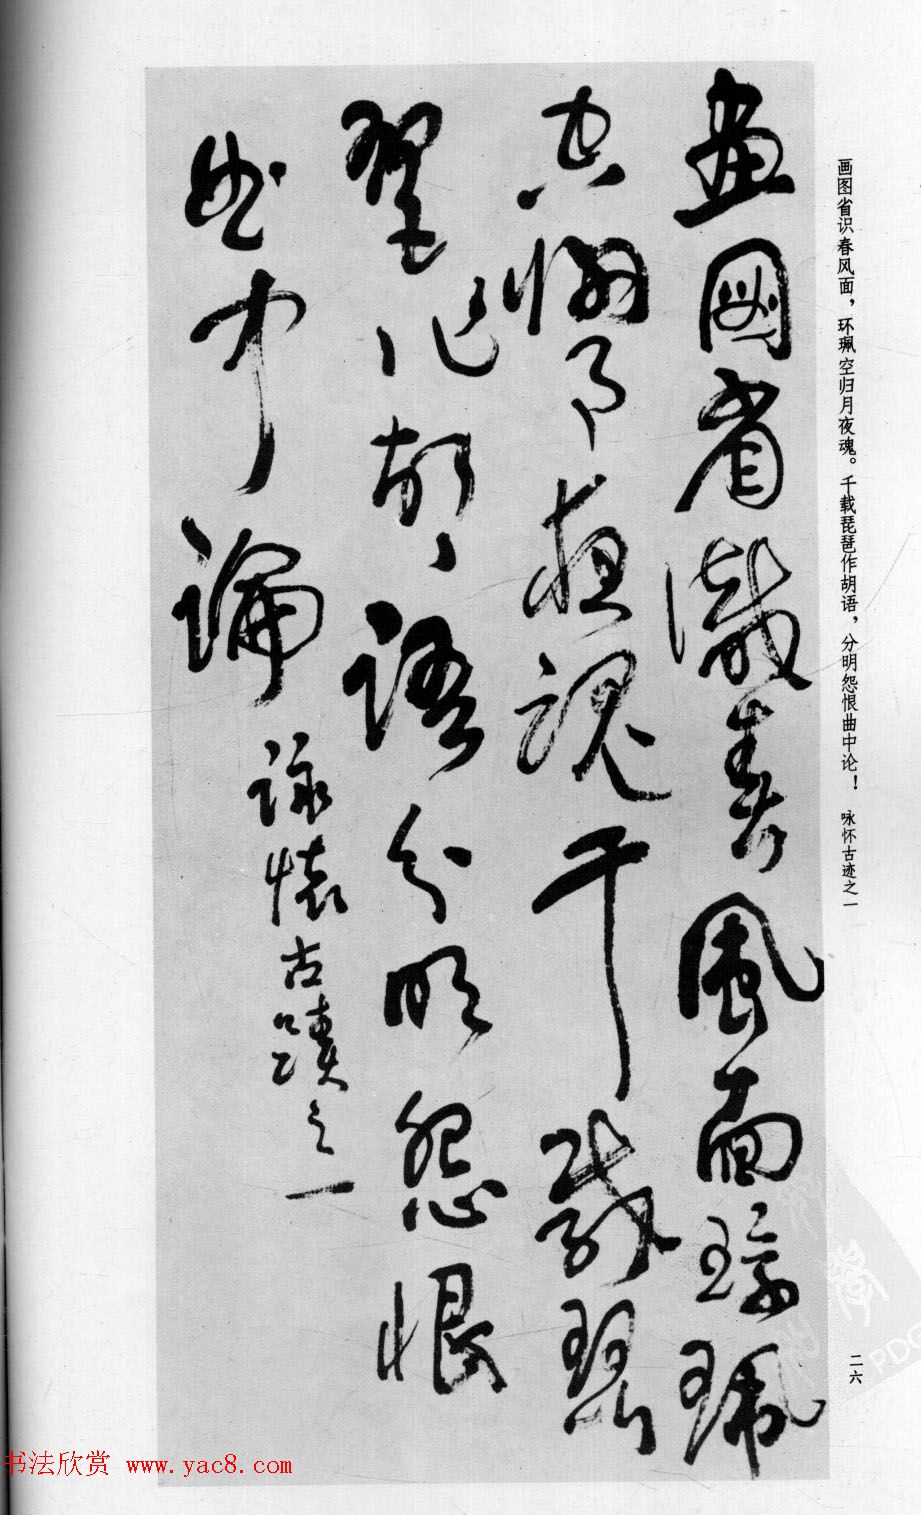 画图省识春风面，环珮空归月夜魂。千载琵琶作胡语，分明怨恨曲中论！ 咏怀古迹之一
畫圖省識春風面環珮
空歸月夜魂千載琵
琶作胡語分明怨恨
曲中論
詠懷古蹟之一
二六
书法欣赏 www.yac8.com